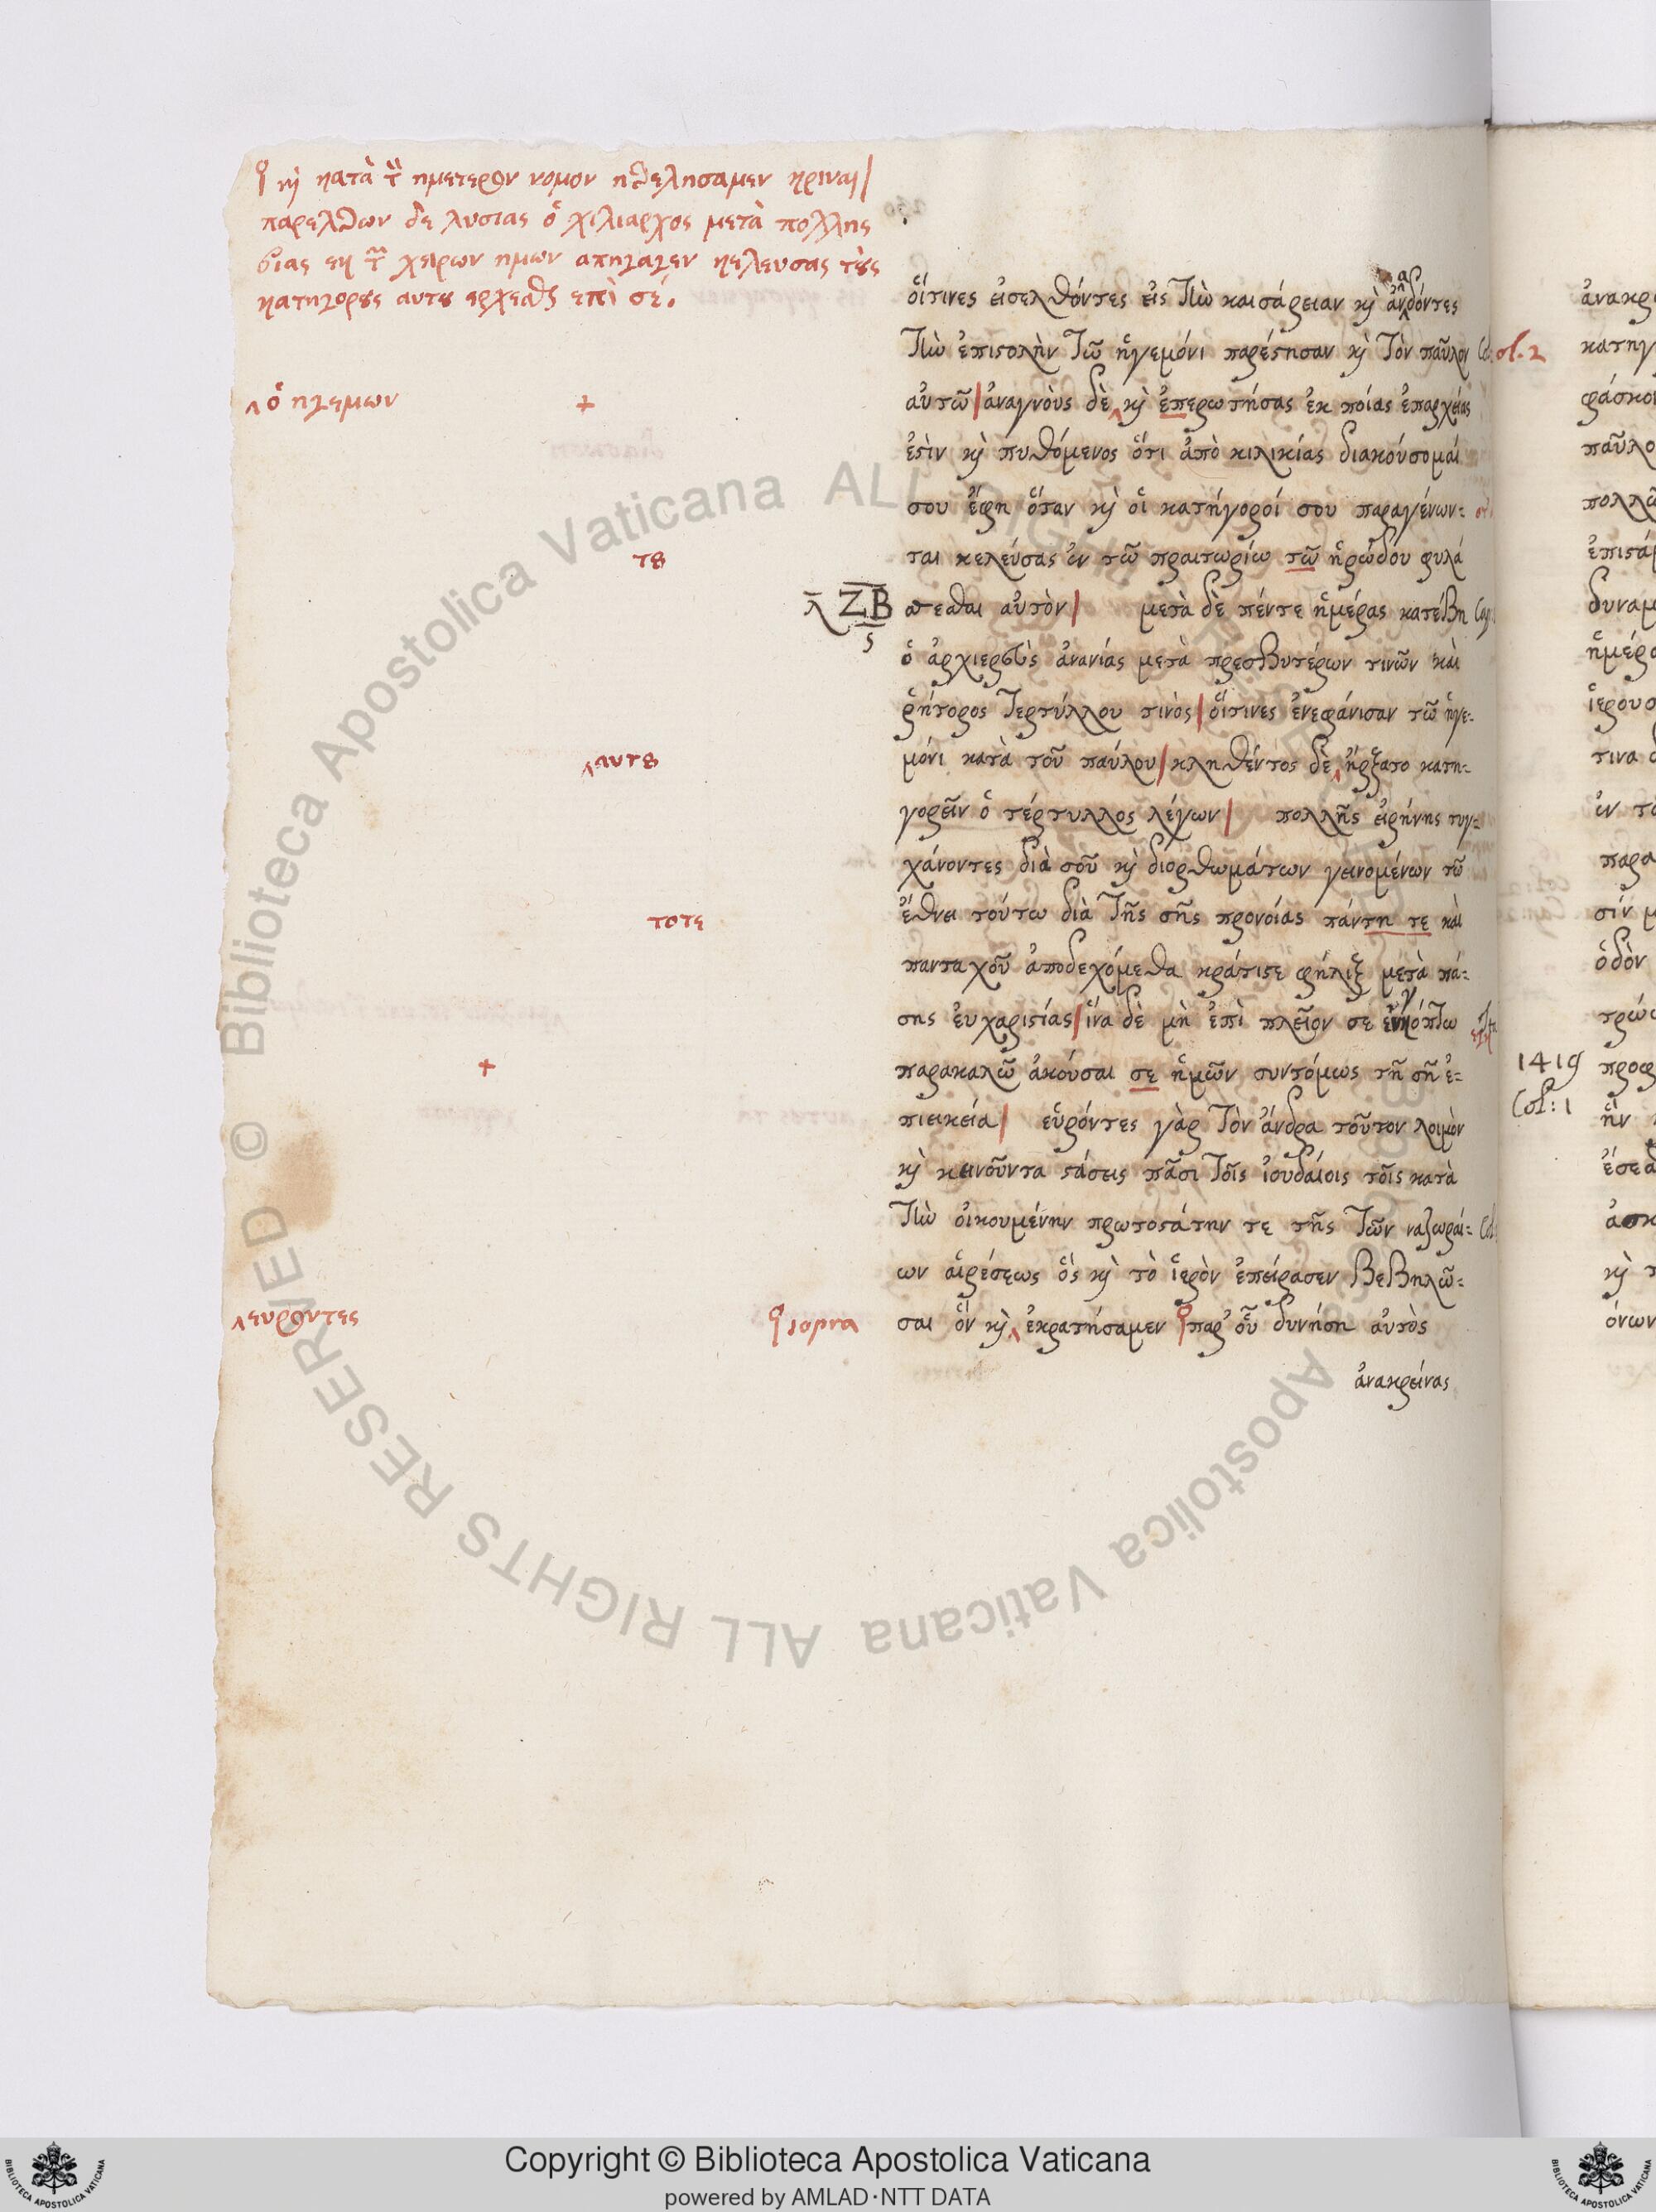 κὶ κατὰ τ̃ ημετερον νομον ηθελησαμεν κριναι/
παρελθων δε λυσιας ὁ χιλιαρχος μετὰ πολλης
βιας εκ τ̃ χειρων ημων απηγαγεν κελευσας τὸυς
κατηγορους αυτου ερχεσθαι επὶ σέ.
ὁ ηγεμων
+
του
αυτου
τοτε
+
ευροντες
sopra
λ ΖΒ
ς
οἵτινες εἰσελθόντες εἰς τὴν καισάρειαν κὶ ἀναδόντες
τὴν ἐπιστολὴν τῶ ἡγεμόνι παρέστησαν κὶ τὸν παῦλον
αὐτῶ/ἀναγνοὺς δὲ κὶ ἐπερωτήσας ἐκ ποίας ἐπαρχείας
ἐστὶν κὶ πυθόμενος ὅτι ἀπὸ κιλικίας διακούσομαί
σου ἔφη ὅταν κὶ οἱ κατήγοροί σου παραγένων=
ται κελεύσας ἐν τῶ πραιτωρίω τῶ ἡρώδου φυλά
ττεσθαι αὐτὸν/ μετὰ δὲ πέντε ἡμέρας κατέβη
ὁ ἀρχιερεὺς ἀνανίας μετὰ πρεσβυτέρων τινῶν καὶ
ῥήτορος τερτύλλου τινὸς/οἵτινες ἐνεφάνισαν τῶ ἡγε=
μόνι κατὰ τοῦ παύλου/κληθέντος δὲ ἤρξατο κατη=
γορεῖν ὁ τέρτυλλος λέγων/ πολλῆς εἰρήνης τυγ=
χάνοντες διὰ σοῦ κὶ διορθωμάτων γεινομένων τῶ
ἔθνει τούτω διὰ τῆς σῆς προνοίας πάντη τε καὶ
πανταχοῦ ἀποδεχόμεθα κράτιστε φήλιξ μετὰ πά=
σης ἐυχαριστίας/ἵνα δὲ μὴ ἐπὶ πλεῖον σε ἐνκόπτω
παρακαλῶ ἀκούσαι σε ἡμῶν συντόμως τῆ σῆ ἐ=
πιεικεία/ εὑρόντες γὰρ τὸν ἄνδρα τοῦτον λοιμὸν
κὶ κεινοῦντα στάσεις πᾶσι τοῖς ἰουδαίοις τοῖς κατὰ
τὴν οἰκουμένην πρωτοστάτην τε τῆς τῶν ναζωραί=
ων αἱρέσεως ὃς κὶ τὸ ἱερὸν ἐπείρασεν βεβηλῶ=
σαι ὃν κὶ ἐκρατήσαμεν παρ' οὗ δυνήση αὐτὸς
ἀνακρείνας
ol. 2
1419
Col: 1
Copyright © Biblioteca Apostolica Vaticana
powered by AMLAD·NTT DATA
© Biblioteca Apostolica Vaticana ALL RIGHTS RESERVED